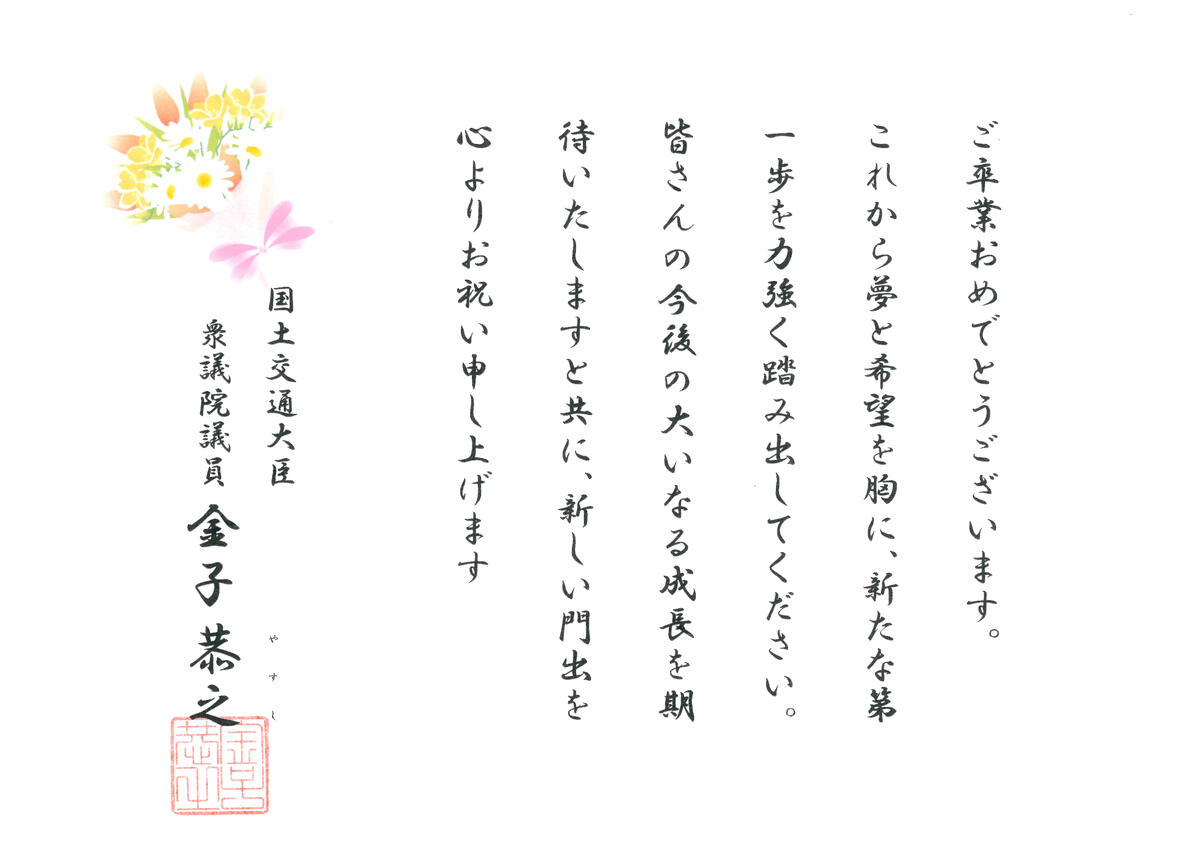 ご卒業おめでとうございます。
これから夢と希望を胸に、新たな第
一歩を力強く踏み出してください。
皆さんの今後の大いなる成長を期
待いたしますと共に、新しい門出を
心よりお祝い申し上げます
国土交通大臣
衆議院議員 金子恭之
やすし
金子恭之